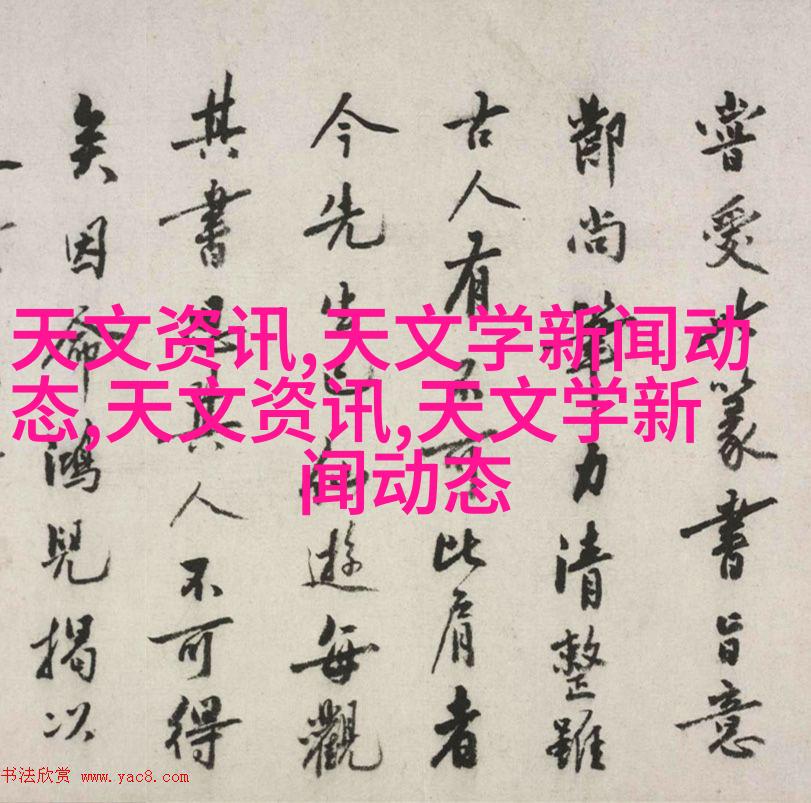 嘗受篆書旨意
尚筆力清整雖
古人有不可比肩者
今先生已遊每觀
其書思其人不可得
矣因命鴻兒揭以
天文资讯,天文学新闻动
态,天文资讯,天文学新
闻动态
书法欣赏 www.yac8.com